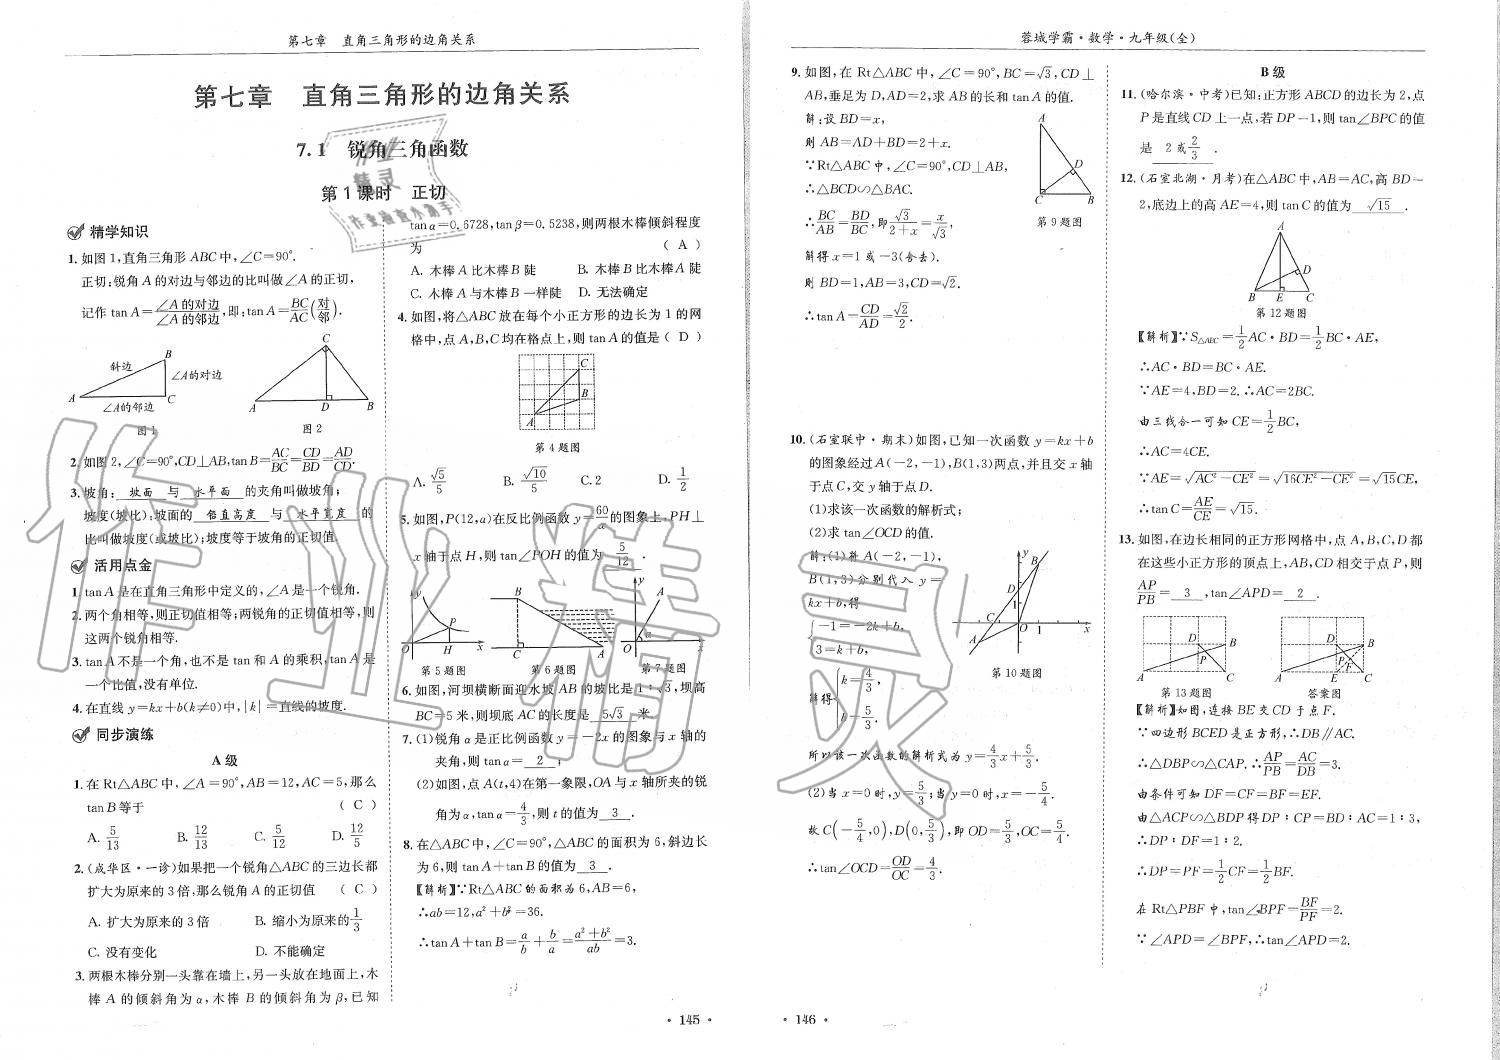 第七章 直角三角形的边角关系
第七章 直角三角形的边角关系
7.1 锐角三角函数
第1课时 正切
精学知识
1. 如图1,直角三角形ABC中,∠C=90°.
正切:锐角A的对边与邻边的比叫做∠A的正切,
记作tan A=∠A的对边/∠A的邻边,即:tan A=BC/AC(对/邻).
B
斜边
∠A的对边
A
C
∠A的邻边
图1
C
A
D
B
图2
2. 如图2,∠C=90°,CD⊥AB,tan B=AC/BC=CD/BD=AD/CD.
3. 坡角: 坡面 与 水平面 的夹角叫做坡角;
坡度(坡比):坡面的 铅直高度 与 水平宽度 的
比叫做坡度(或坡比);坡度等于坡角的正切值.
活用点金
1. tan A是在直角三角形中定义的,∠A是一个锐角.
2. 两个角相等,则正切值相等;两锐角的正切值相等,则
这两个锐角相等.
3. tan A不是一个角,也不是tan和A的乘积,tan A是
一个比值,没有单位.
4. 在直线y=kx+b(k≠0)中,|k|=直线的坡度.
同步演练
A级
1. 在Rt△ABC中,∠A=90°,AB=12,AC=5,那么
tan B等于 ( C )
A. 5/13 B. 12/13 C. 5/12 D. 12/5
2. (成华区·一诊)如果把一个锐角△ABC的三边长都
扩大为原来的3倍,那么锐角A的正切值 ( C )
A. 扩大为原来的3倍 B. 缩小为原来的1/3
C. 没有变化 D. 不能确定
3. 两根木棒分别一头靠在墙上,另一头放在地面上,木
棒A的倾斜角为α,木棒B的倾斜角为β,已知
tan α=0.6728,tan β=0.5238,则两根木棒倾斜程度
为 ( A )
A. 木棒A比木棒B陡 B. 木棒B比木棒A陡
C. 木棒A与木棒B一样陡 D. 无法确定
4. 如图,将△ABC放在每个小正方形的边长为1的网
格中,点A,B,C均在格点上,则tan A的值是( D )
C
B
A
第4题图
A. √5/5 B. √10/5 C. 2 D. 1/2
5. 如图,P(12,a)在反比例函数y=60/x的图象上,PH⊥
x轴于点H,则tan∠POH的值为 5/12 .
y
P
O
H
x
第5题图
B
C
A
第6题图
y
A
α
O
x
第7题图
6. 如图,河坝横断面迎水坡AB的坡比是1∶√3,坝高
BC=5米,则坝底AC的长度是 5√3 米.
7. (1)锐角α是正比例函数y=-2x的图象与x轴的
夹角,则tan α= 2 ;
(2)如图,点A(t,4)在第一象限,OA与x轴所夹的锐
角为α,tan α=4/3,则t的值为 3 .
8. 在△ABC中,∠C=90°,△ABC的面积为6,斜边长
为6,则tan A+tan B的值为 3 .
【解析】∵Rt△ABC的面积为6,AB=6,
∴ab=12,a²+b²=36.
∴tan A+tan B=a/b+b/a=a²+b²/ab=3.
· 145 ·
蓉城学霸·数学·九年级(全)
9. 如图,在Rt△ABC中,∠C=90°,BC=√3,CD⊥
AB,垂足为D,AD=2,求AB的长和tan A的值.
解:设BD=x,
则AB=AD+BD=2+x.
∵Rt△ABC中,∠C=90°,CD⊥AB,
∴△BCD∽△BAC.
∴BC/AB=BD/BC,即√3/2+x=x/√3,
解得x=1或-3(舍去).
则BD=1,AB=3,CD=√2.
∴tan A=CD/AD=√2/2.
A
D
C
B
第9题图
10. (石室联中·期末)如图,已知一次函数y=kx+b
的图象经过A(-2,-1),B(1,3)两点,并且交x轴
于点C,交y轴于点D.
(1)求该一次函数的解析式;
(2)求tan∠OCD的值.
解:(1)将A(-2,-1),
B(1,3)分别代入y=
kx+b,得
{-1=-2k+b,
3=k+b,
解得{k=4/3,
b=5/3.
y
B
D
1
C
O
1
x
A
第10题图
所以该一次函数的解析式为y=4/3x+5/3.
(2)当x=0时,y=5/3;当y=0时,x=-5/4.
故C(-5/4,0),D(0,5/3),即OD=5/3,OC=5/4.
∴tan∠OCD=OD/OC=4/3.
· 146 ·
B级
11. (哈尔滨·中考)已知:正方形ABCD的边长为2,点
P是直线CD上一点,若DP-1,则tan∠BPC的值
是 2或2/3 .
12. (石室北湖·月考)在△ABC中,AB=AC,高BD=
2,底边上的高AE=4,则tan C的值为 √15 .
A
D
B
E
C
第12题图
【解析】∵S△ABC=1/2AC·BD=1/2BC·AE,
∴AC·BD=BC·AE.
∵AE=4,BD=2.∴AC=2BC.
由三线合一可知CE=1/2BC,
∴AC=4CE.
∵AE=√AC²-CE²=√16CE²-CE²=√15CE,
∴tan C=AE/CE=√15.
13. 如图,在边长相同的正方形网格中,点A,B,C,D都
在这些小正方形的顶点上,AB,CD相交于点P,则
AP/PB= 3 ,tan∠APD= 2 .
D
B
P
A
C
第13题图
D
B
P
F
E
A
C
答案图
【解析】如图,连接BE交CD于点F.
∵四边形BCED是正方形,∴DB∥AC.
∴△DBP∽△CAP.∴AP/PB=AC/DB=3.
由条件可知DF=CF=BF=EF.
由△ACP∽△BDP得DP∶CP=BD∶AC=1∶3,
∴DP∶DF=1∶2.
∴DP=PF=1/2CF=1/2BF.
在Rt△PBF中,tan∠BPF=BF/PF=2.
∵∠APD=∠BPF,∴tan∠APD=2.